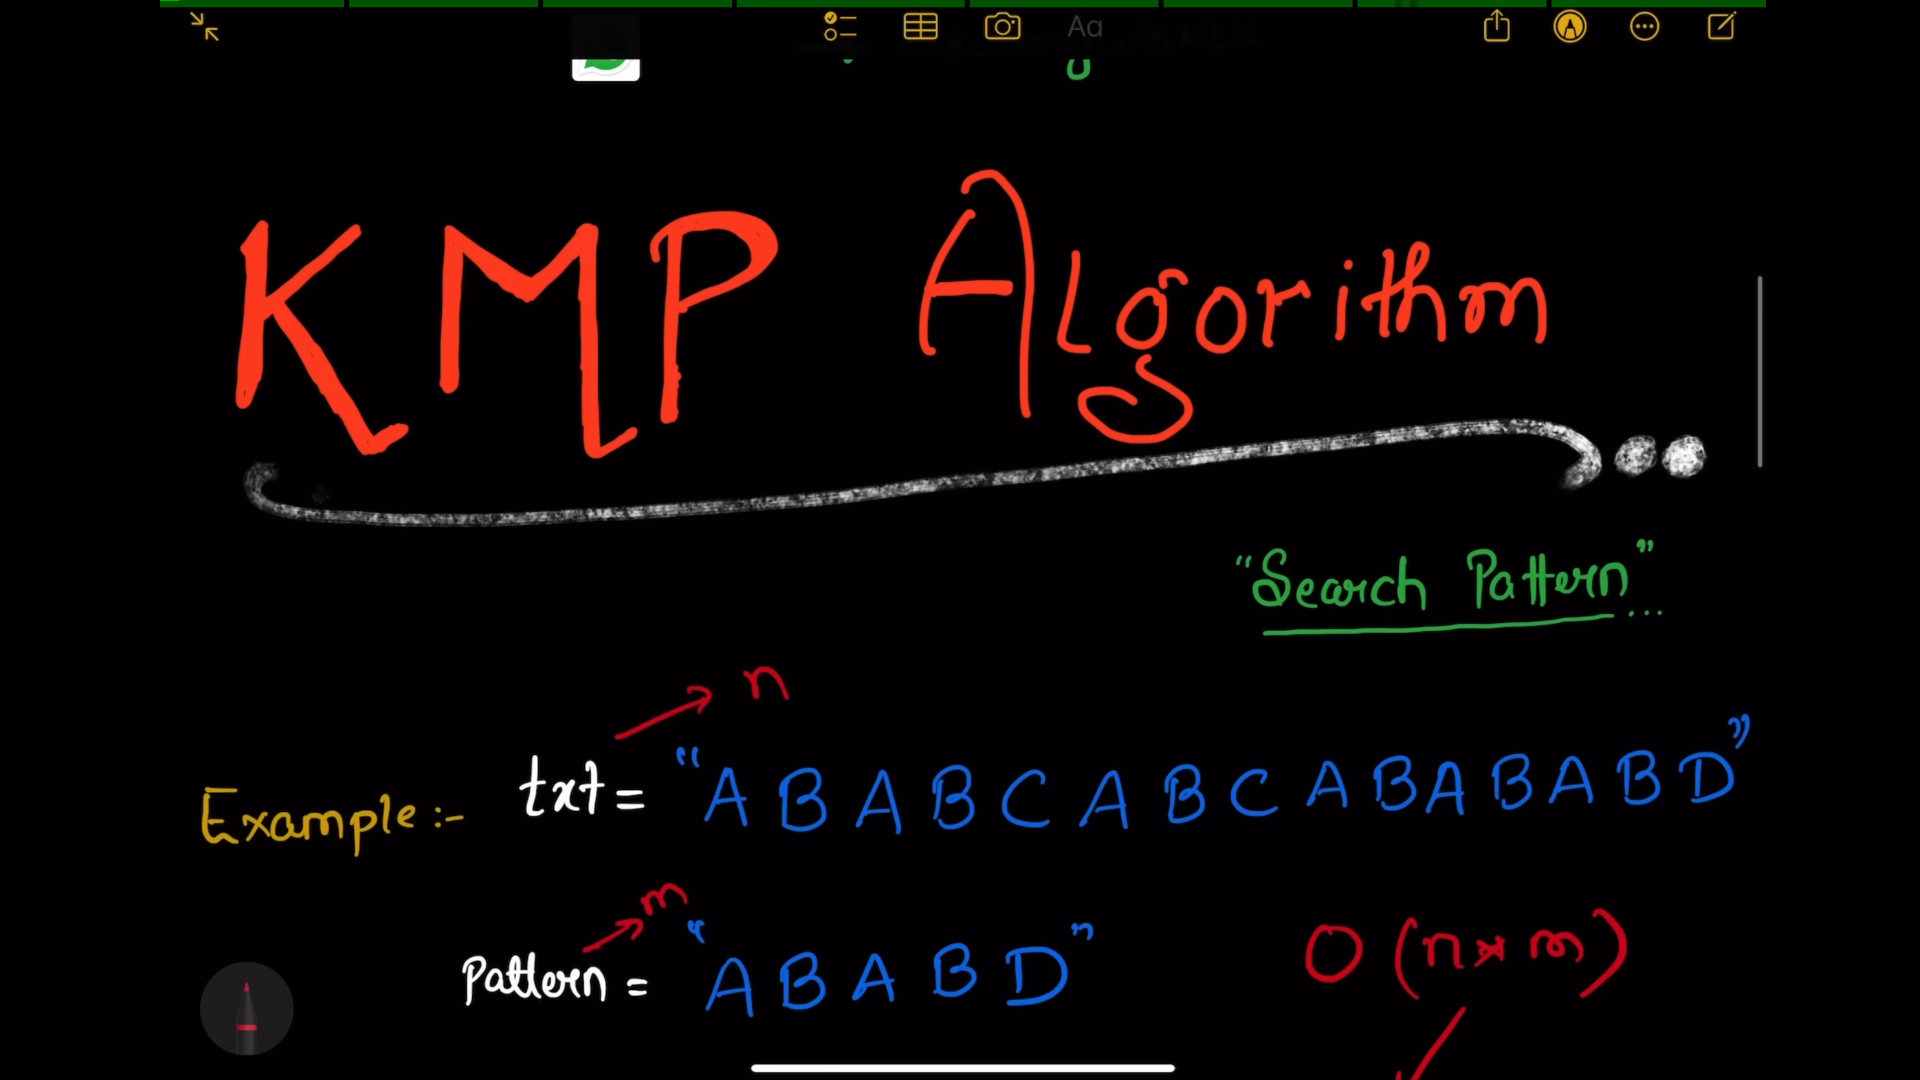 Aa
KMP Algorithm
"Search Pattern"...
n
Example :- txt = "ABABCABCABABABD"
m
Pattern = "ABABD"
O(n*m)